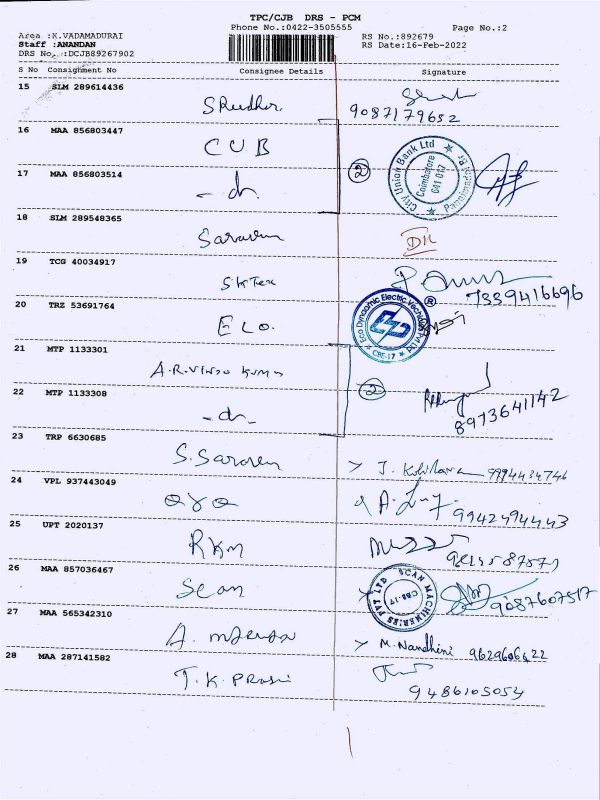 TPC/CJB DRS - PCM
Phone No.:0422-3505555 Page No.:2
Area :K.VADAMADURAI RS No.:892679
Staff :ANANDAN RS Date:16-Feb-2022
DRS No. :DCJB89267902
S No Consignment No Consignee Details Signature
15 SLM 289614436
9087179652
16 MAA 856803447
CUB
17 MAA 856803514
- do.
2
City Union Bank Ltd
Coimbatore
641 017
18 SLM 289548365
Saravan
19 TCG 40034917
SKTex
7339416696
20 TRZ 53691764
ELO.
Eco Dynamic Electric Vechicles Pvt Ltd
CBE-17
21 MTP 1133301
22 MTP 1133308
- do -
2
8973641142
23 TRP 6630685
S. Saravan
9994434746
24 VPL 937443049
9942494443
25 UPT 2020137
RKM
26 MAA 857036467
Scan
SCAN MACHINERIES PVT LTD
CBE-17
9087607517
27 MAA 565342310
M. Nandhini 9629606422
28 MAA 287141582
T.K Prasni
9486105054